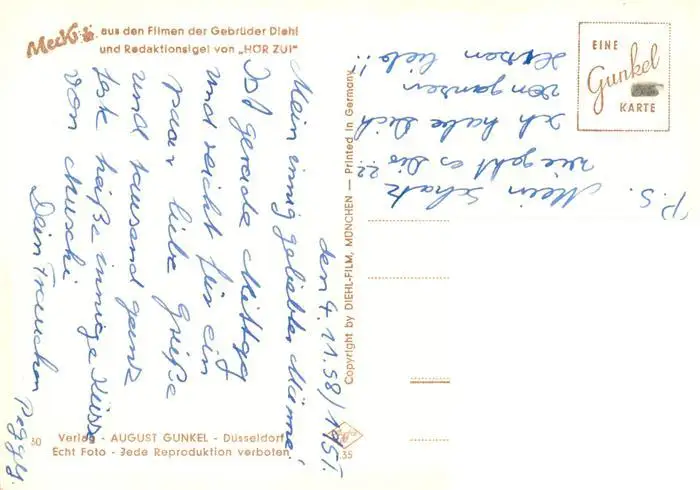 Mecki
aus den Filmen der Gebrüder Diehl
und Redaktionsigel von „HÖR ZU!"
EINE
Gunkel
KARTE
den 4.11.58/1957.
Mein innig geliebter Männe!
Ist gerade Mittag
und reicht für ein
paar liebe Grüße
und tausend ganz
feste heiße innige Küsse
von Muschi
Dein Frauchen Peggy.
P.S. Mein Schatz
wie geht es Dir??
Ich habe Dich
von ganzen
Herzen lieb!!
Copyright by DIEHL-FILM, MÜNCHEN — Printed in Germany
30
Verlag - AUGUST GUNKEL - Düsseldorf
Echt Foto - Jede Reproduktion verboten
35